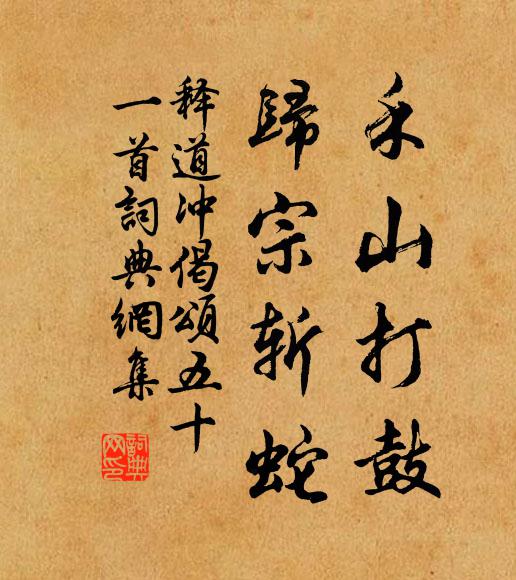 禾山打鼓
歸宗斬蛇
释道冲偈頌五十
一首詞典網集
詞典
网印